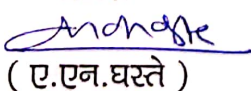 ( ए.एन.घस्ते )